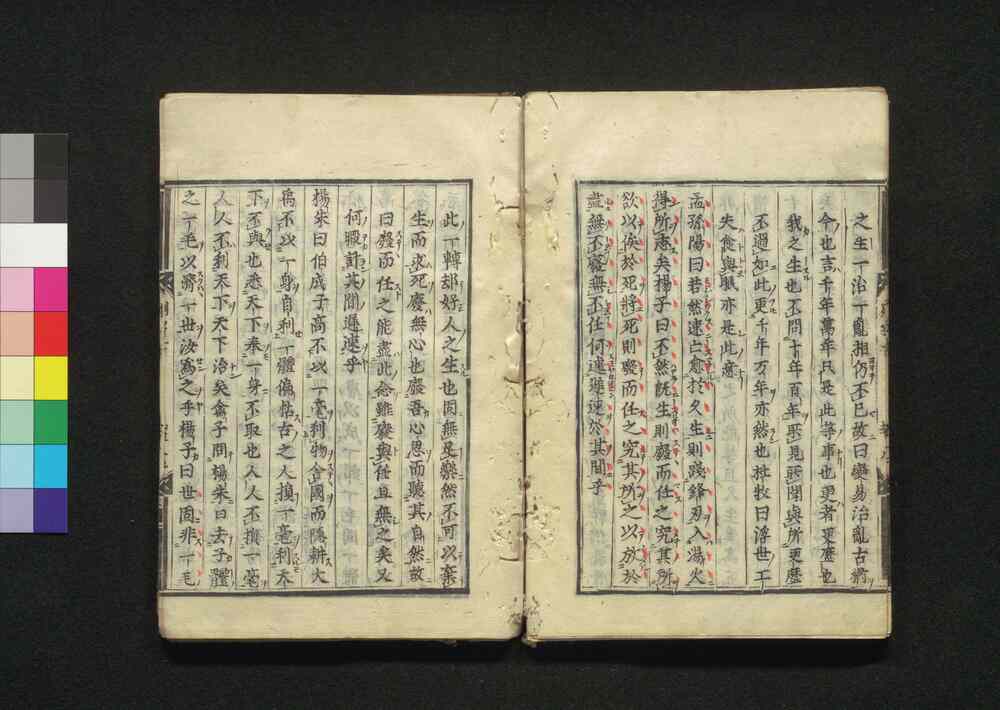 之生一治一亂相仍不已故曰變易治亂古猶
今也言千年萬年只是此等事也更者更歷也
我之生也不問十年百年聖見所聞與所更歷
不過如此更千年万年亦然也杜牧曰浮世工
夫食與眠亦是此意
孟孫陽曰若然速亡愈於久生則踐鋒刃入湯火
得所志矣楊子曰不然既生則廢而任之究其所
欲以俟於死將死則廢而任之究其所之以放於
盡無不廢無不任何遽遲速於其間乎
此一轉却好人之生也固無足樂然不可以棄
生而求死廢無心也廢吾心思而聽其自然故
曰廢而任之能盡此念雖廢與任且無之矣又
何暇計其間遲速乎
楊朱曰伯成子高不以一毫利物舍國而隱耕大
禹不以一身自利一體偏枯古之人損一毫利天
下不與也悉天下奉一身不取也人人不損一毫
人人不利天下天下治矣禽子問楊朱曰去子體
之一毛以濟一世汝為之乎楊子曰世固非一毛